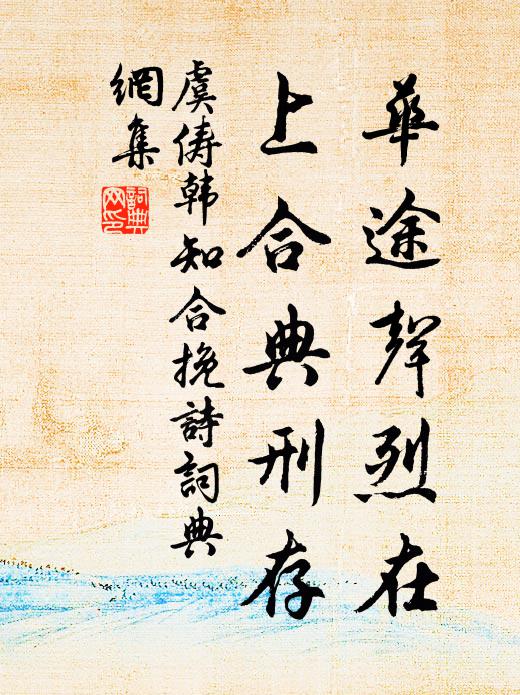 華途聲烈在
上合典刑存
虞儔韩知合挽詩詞典
網集
詞典網印